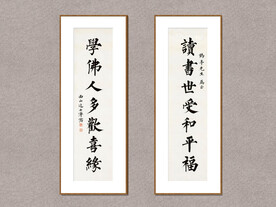 讀書世受和平福
學佛人多歡喜緣